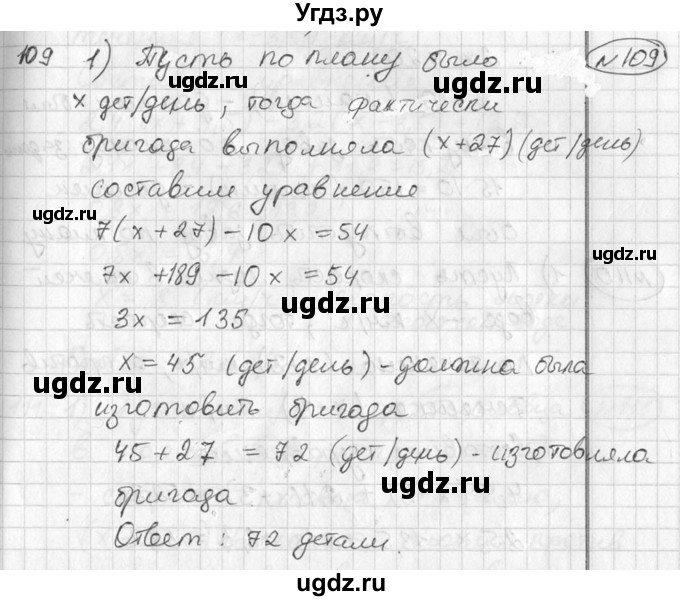 Угдз.ру
109 1) Пусть по плану было №109
x дет/день, тогда фактически
бригада выполняла (x+27) (дет/день)
составим уравнение
7(x+27)-10x=54
7x+189-10x=54
3x=135
x=45 (дет/день) - должна была
изготовить бригада
45+27=72 (дет/день) - изготовляла
бригада.
Ответ: 72 детали.
ugdz.ru
ugdz.ru
ugdz.ru
ugdz.ru
ugdz.ru
ugdz.ru
ugdz.ru
ugdz.ru
ugdz.ru
ugdz.ru
ugdz.ru
ugdz.ru